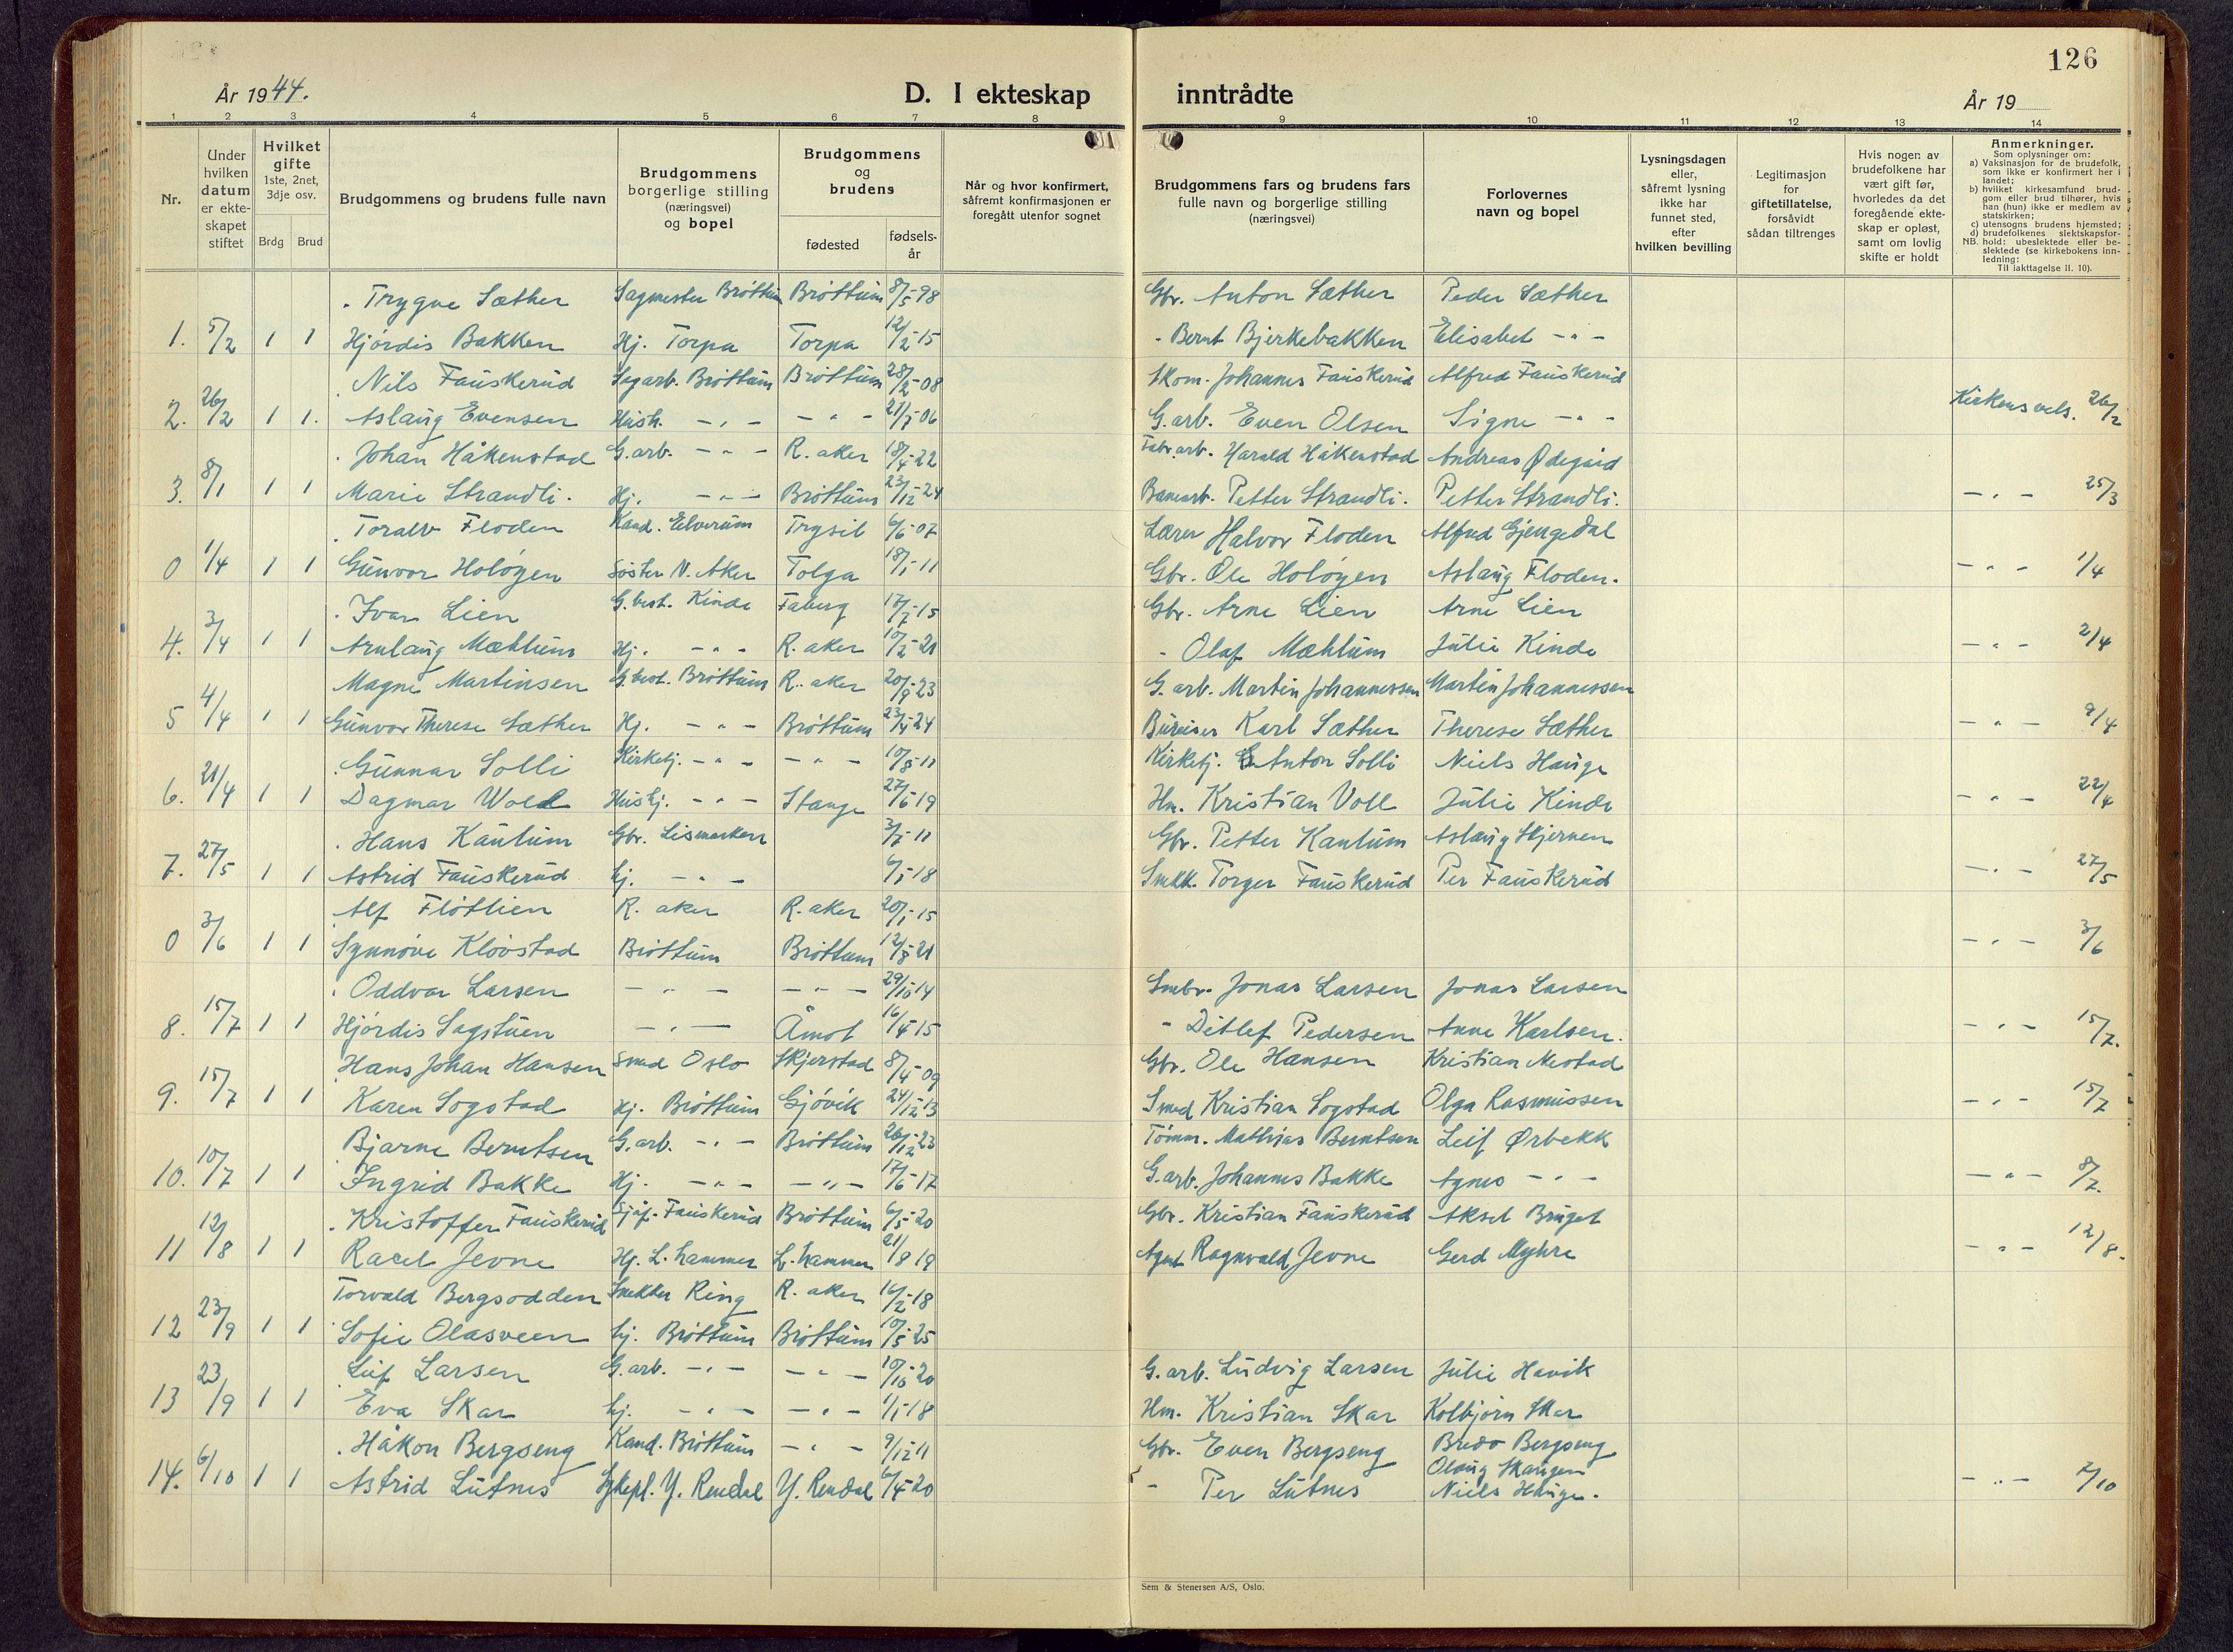 126
År 1944.
D. I ekteskap inntrådte
År 19
1 2 3 4 5 6 7 8 9 10 11 12 13 14
Nr.
Under hvilken datum er ekteskapet stiftet
Hvilket gifte 1ste, 2net, 3dje osv.
Brdg Brud
Brudgommens og brudens fulle navn
Brudgommens borgerlige stilling (næringsvei) og bopel
Brudgommens og brudens
fødested
fødselsår
Når og hvor konfirmert, såfremt konfirmasjonen er foregått utenfor sognet
Brudgommens fars og brudens fars fulle navn og borgerlige stilling (næringsvei)
Forlovernes navn og bopel
Lysningsdagen eller, såfremt lysning ikke har funnet sted, efter hvilken bevilling
Legitimasjon for giftetillatelse, forsåvidt sådan tiltrenges
Hvis nogen av brudefolkene har vært gift før, hvorledes da det foregående ekteskap er opløst, samt om lovlig skifte er holdt
Anmerkninger.
Som oplysninger om:
a) Vaksinasjon for de brudefolk, som ikke er konfirmert her i landet;
b) hvilket kirkesamfund brudgom eller brud tilhører, hvis han (hun) ikke er medlem av statskirken;
c) utensogns brudens hjemsted;
d) brudefolkenes slektskapsforhold: ubeslektede eller beslektede (se kirkebokens innledning:
NB.
Til iakttagelse II. 10).
Trygve Sæther Sagmester Brøttum Brøttum 8/5-98 Gbr. Anton Sæther Peder Sæther
1. 5/2 1 1 Hjørdis Bakken Hj. Torpa Torpa 12/2-15 - Bernt Bjerkebakken Elisabet - " -
Nils Fauskerud Sagarb. Brøttum Brøttum 28/2-08 Skom. Johannes Fauskerud Alfred Fauskerud
2. 26/2 1 1. Aslaug Evensen Hush. - " - - " - 21/7-06 G.arb. Even Olsen Signe - " - Kirkens vels. 26/2
Johan Håkenstad G.arb. - " - R.aker 18/4-22 Fabr.arb. Harald Håkenstad Andreas Ødegård
3. 8/1 1 1 Marie Strandli. Hj. - " - Brøttum 23/12-24 Banearb. Petter Strandli. Petter Strandli. - " - 25/3
Toralv Floden Kand. Elverum Trysil 6/6-07 Lærer Halvor Floden Alfred Gjengedal
0 1/4 1 1 Gunvor Holøyen Søster N. Aker Tolga 18/1-11 Gbr. Ole Holøyen Aslaug Floden. - " - 1/4
Ivar Lien G.best. Kinde Faberg 17/7-15 Gbr. Arne Lien Arne Lien
4. 3/4 1 1 Arnlaug Mæhlum Hj. - " - R.aker 10/2-21 - Olaf Mæhlum Julie Kinde - " - 2/4
Magne Martinsen G.best. Brøttum R.aker 20/9-23 G.arb. Martin Johannessen Martin Johannessen
5 4/4 1 1 Gunvor Therese Sæther Hj. - " - Brøttum 23/4-24 Bureiser Karl Sæther Therese Sæther - " - 9/4
Gunnar Solli Kirketj. - " - - " - 10/8-11 Kirketj. Anton Solli Niels Hauge
6. 21/4 1 1 Dagmar Wold Hushj. - " - Stange 27/6-19 Hm. Kristian Voll Julie Kinde - " - 22/4
Hans Kautum Gbr. Lismarken 3/7-11 Gbr. Petter Kautum Aslaug Skjernen
7. 27/5 1 1 Astrid Fauskerud hj. - " - 6/1-18 Snekk. Torger Fauskerud Per Fauskerud - " - 27/5
Alf Fløtlien R. aker R. aker 20/1-15
0 3/6 1 1 Synnøve Kløvstad Brøttum Brøttum 12/8-21 - " - 3/6
Oddvar Larsen - " - - " - 29/10-14 Smbr. Jonas Larsen Jonas Larsen
8. 15/7 1 1 Hjørdis Sagstuen - " - Åmot 16/4-15 - Ditlef Pedersen Anne Karlsen. - " - 15/7.
Hans Johan Hansen Smed Oslo Skjerstad 8/4-09 Gbr. Ole Hansen Kristian Nestad
9. 15/7 1 1 Karen Sogstad Hj. Brøttum Gjøvik 24/12-13 Smed Kristian Sogstad Olga Rasmussen - " - 15/7
Bjarne Berntsen G.arb. - " - Brøttum 26/12-23 Tømm. Mathias Berntsen Leif Ørbekk
10. 10/7 1 1 Ingrid Bakke Hj. - " - - " - 17/6-17 G.arb. Johannes Bakke Agnes - " - - " - 8/7.
Kristoffer Fauskerud Sjåf. Fauskerud Brøttum 6/5-20 Gbr. Kristian Fauskerud Aksel Bruget
11 12/8 1 1 Racel Jevne Hj. L.hammer L.hammer 21/8 19 Agent Ragnvald Jevne Gerd Myhre - " - 12/8.
Torvald Bergsodden Snekker Ring R. aker 16/2-18
12 23/9 1 1 Sofie Olasveen hj. Brøttum Brøttum 10/5-25
Leif Larsen G.arb. - " - - " - 10/10-20 G.arb. Ludvig Larsen Julie Havik
13 23/9 1 1 Eva Skar hj. - " - - " - 1/1-18 Hm. Kristian Skar Kolbjørn Skar
Håkon Bergseng Kand. Brøttum - " - 9/12-11 Gbr. Even Bergseng Bredo Bergseng
Olaug Skaugen
14. 6/10 1 1 Astrid Lutnes Sykepl. Y. Rendal Y. Rendal 6/4-20 - Per Lutnes Niels Hauge. - " - 7/10
Sem & Stenersen A/S, Oslo.